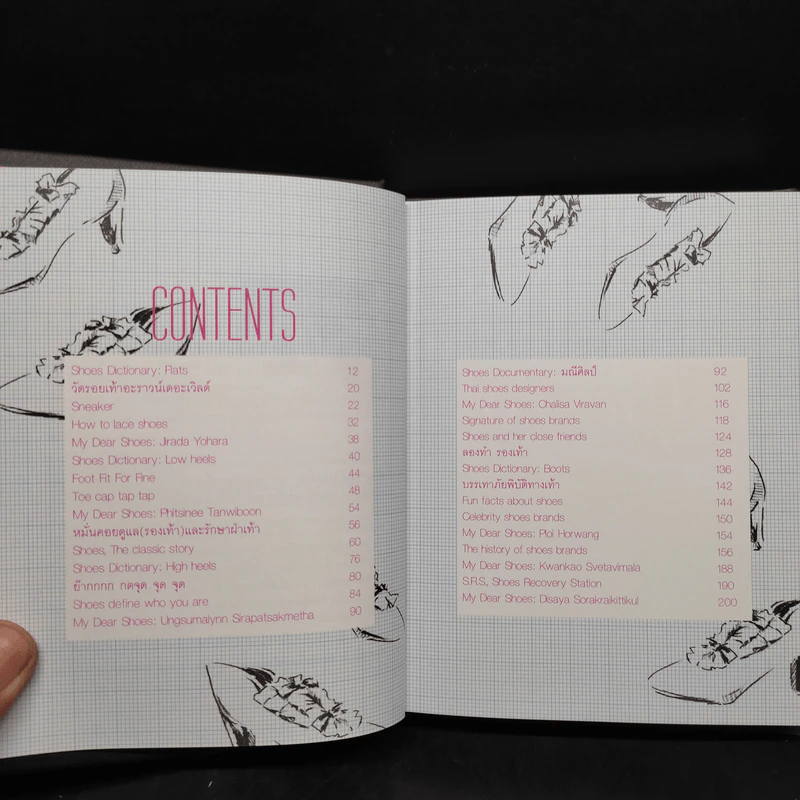 CONTENTS
Shoes Dictionary: Flats 12
วัดรอยเท้าอะราวน์เดอะเวิลด์ 20
Sneaker 22
How to lace shoes 32
My Dear Shoes: Jirada Yohara 38
Shoes Dictionary: Low heels 40
Foot Fit For Fine 44
Toe cap tap tap 48
My Dear Shoes: Phitsinee Tanwiboon 54
หมั่นคอยดูแล(รองเท้า)และรักษาฝ่าเท้า 56
Shoes, The classic story 60
Shoes Dictionary: High heels 76
ย๊ากกกก กดจุด จุด จุด 80
Shoes define who you are 84
My Dear Shoes: Ungsumalynn Sirapatsakmetha 90
Shoes Documentary: มณีศิลป์ 92
Thai shoes designers 102
My Dear Shoes: Chalisa Viravan 116
Signature of shoes brands 118
Shoes and her close friends 124
ลองทำ รองเท้า 128
Shoes Dictionary: Boots 136
บรรเทาภัยพิบัติทางเท้า 142
Fun facts about shoes 144
Celebrity shoes brands 150
My Dear Shoes: Ploi Horwang 154
The history of shoes brands 156
My Dear Shoes: Kwankao Svetavimala 188
S.R.S, Shoes Recovery Station 190
My Dear Shoes: Disaya Sorakraikittikul 200